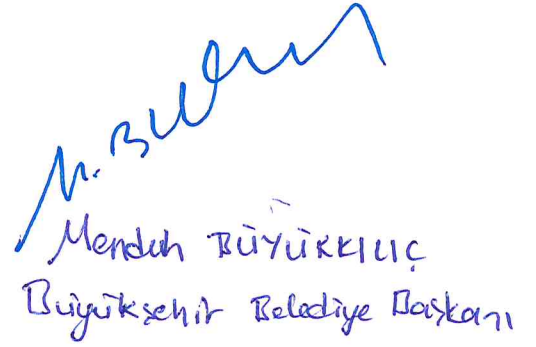 M. Bü
Memduh BÜYÜKKILIÇ
Büyükşehir Belediye Başkanı